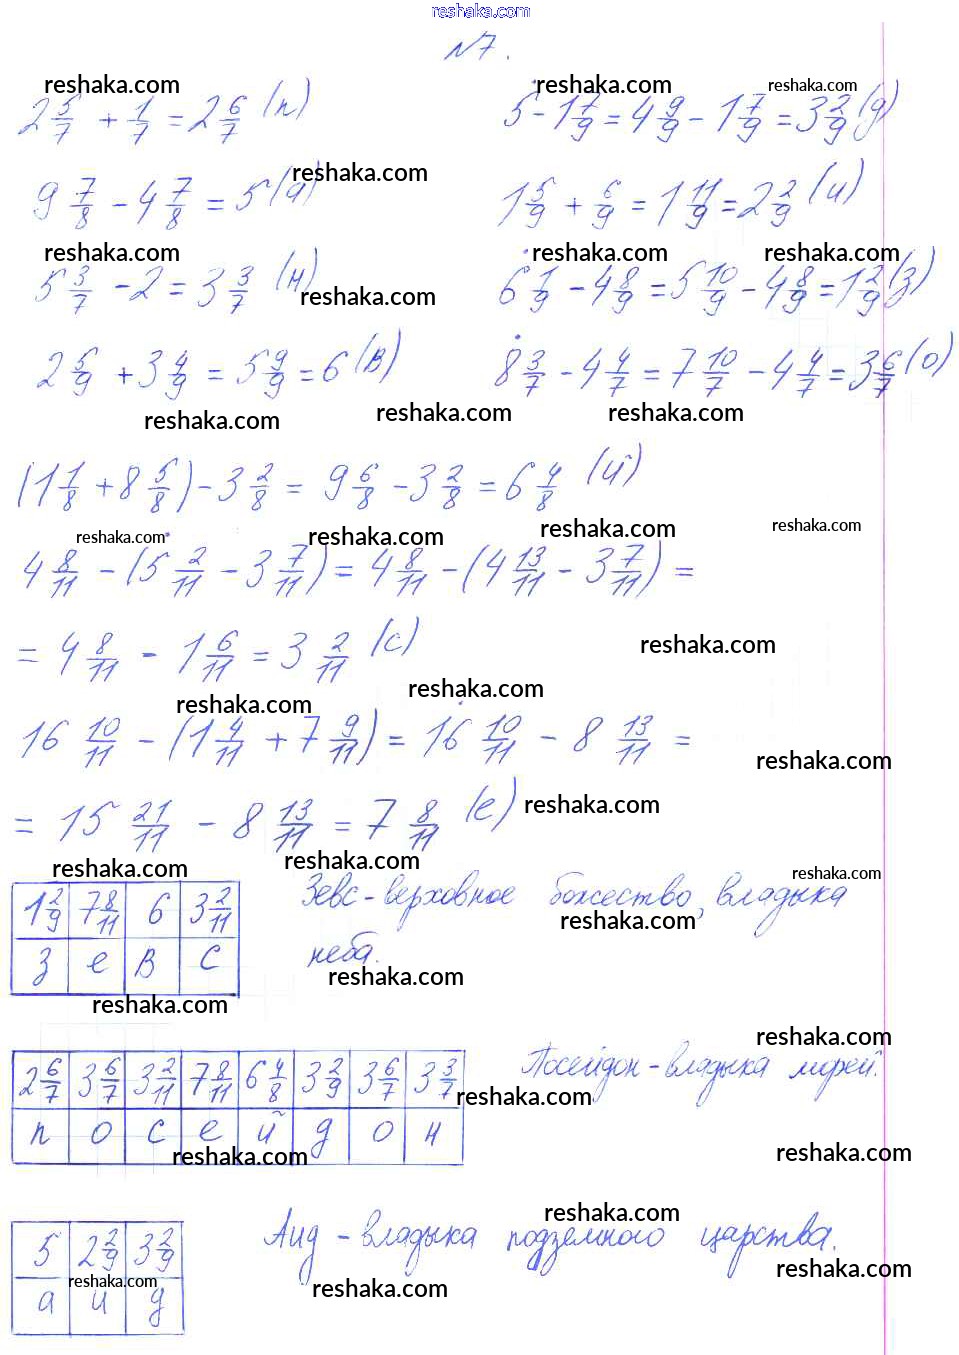 reshaka.com
№7.
reshaka.com reshaka.com reshaka.com
2 5/7 + 1/7 = 2 6/7 (п) 5 - 1 7/9 = 4 9/9 - 1 7/9 = 3 2/9 (д)
reshaka.com
9 7/8 - 4 7/8 = 5 (а) 1 5/9 + 6/9 = 1 11/9 = 2 2/9 (и)
reshaka.com reshaka.com reshaka.com
5 3/7 - 2 = 3 3/7 (н) 6 1/9 - 4 8/9 = 5 10/9 - 4 8/9 = 1 2/9 (з)
reshaka.com
2 5/9 + 3 4/9 = 5 9/9 = 6 (в) 8 3/7 - 4 4/7 = 7 10/7 - 4 4/7 = 3 6/7 (о)
reshaka.com reshaka.com reshaka.com
(1 1/8 + 8 5/8) - 3 2/8 = 9 6/8 - 3 2/8 = 6 4/8 (й)
reshaka.com reshaka.com reshaka.com reshaka.com
4 8/11 - (5 2/11 - 3 7/11) = 4 8/11 - (4 13/11 - 3 7/11) =
= 4 8/11 - 1 6/11 = 3 2/11 (с)
reshaka.com
reshaka.com reshaka.com
16 10/11 - (1 4/11 + 7 9/11) = 16 10/11 - 8 13/11 =
reshaka.com
= 15 21/11 - 8 13/11 = 7 8/11 (е)
reshaka.com
reshaka.com reshaka.com reshaka.com
1 2/9 7 8/11 6 3 2/11 Зевс - верховное божество, владыка
reshaka.com
з е в с неба.
reshaka.com
reshaka.com
reshaka.com
2 6/7 3 6/7 3 2/11 7 8/11 6 4/8 3 2/9 3 6/7 3 3/7 Посейдон - владыка морей.
reshaka.com
п о с е й д о н
reshaka.com reshaka.com
reshaka.com
5 2 2/9 3 2/9 Аид - владыка подземного царства.
reshaka.com reshaka.com reshaka.com
а и д